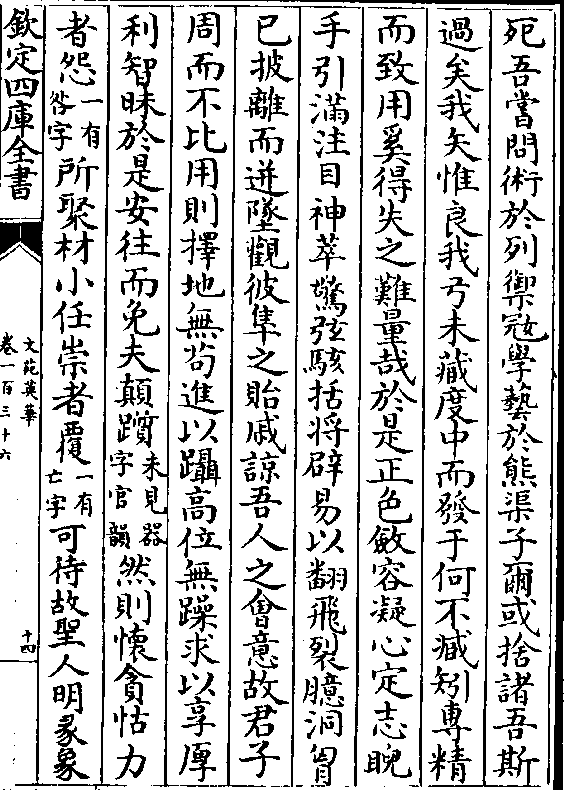 死吾嘗問術於列禦冦學藝於熊渠子爾或捨諸吾斯
過矣我矢惟良我弓未藏度中而發于何不臧矧專精
而致用奚得失之難量哉於是正色斂容凝心定志睨
手引滿注目神萃驚弦駭括将辟易以翻飛裂臆洞胷
已披離而迸墜觀彼隼之貽戚諒吾人之㑹意故君子
周而不比用則擇地無茍進以躡高位無躁求以享厚
利智昧於是安往而免夫顛躓未見器字官韻然則懷貪怙力
者怨一有咎字所聚材小任崇者覆一有亡字可待故聖人明彖象
欽定四庫全書
文苑英華
卷一百三十六
十四